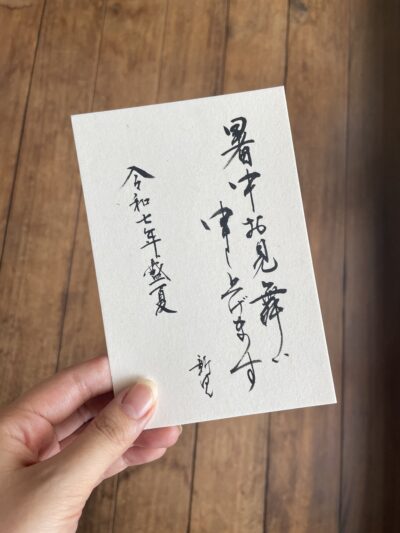 暑中お見舞い
申し上げます
令和七年盛夏